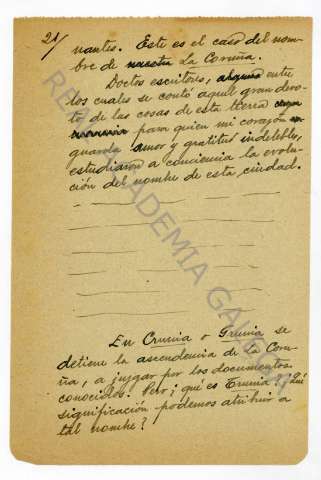 21/
nantes. Este es el caso del nom-
bre de nuestra La Coruña.
Doctos escritores, alguno entre
los cuales se contó aquel gran devo-
to de las cosas de esta tierra cuya
para quien mi corazón
guarda amor y gratitud indelebles,
estudiaron a conciencia la evolu-
ción del nombre de esta ciudad.
En Crunia o Grunia se
detiene la ascendencia de La Coru-
ña, a juzgar por los documentos
conocidos. Pero ¿qué es Crunia? ¿Qué
significación podemos atribuir a
tal nombre?
REAL ACADEMIA GALEGA